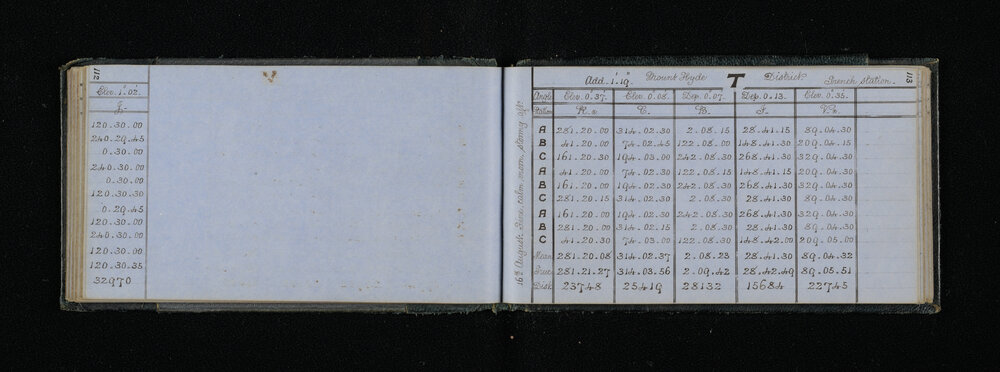 112
Elev. 1.02.
120.30.00
240.29.45
0.30.00
240.30.00
0.30.00
120.30.30
0.29.45
120.30.00
240.30.00
120.30.00
120.30.35
32970
16th August. Fine, calm morn, stormy aft.
113
Add. 1'.19" Mount Hyde T District French station.
Angle Elev. 0.37. Elev. 0.08. Dep. 0.07. Dep. 0.13. Elev. 0.35.
Station
A 281.20.00 314.02.30 2.08.15 28.41.15 89.04.30
B 41.20.00 74.02.45 122.08.00 148.41.30 209.04.15
C 161.20.30 194.03.00 242.08.30 268.41.30 329.04.30
A 41.20.00 74.02.30 122.08.15 148.41.15 209.04.30
B 161.20.00 194.02.30 242.08.30 268.41.30 329.04.30
C 281.20.15 314.02.30 2.08.30 28.41.30 89.04.30
A 161.20.00 194.02.30 242.08.30 268.41.30 329.04.30
B 281.20.00 314.02.15 2.08.30 28.41.30 89.04.30
C 41.20.30 74.03.00 122.08.30 148.42.00 209.05.00
Mean 281.20.08 314.02.37 2.08.23 28.41.30 89.04.32
True 281.21.27 314.03.56 2.09.42 28.42.49 89.05.51
Dist. 23748 25419 28132 15684 22745